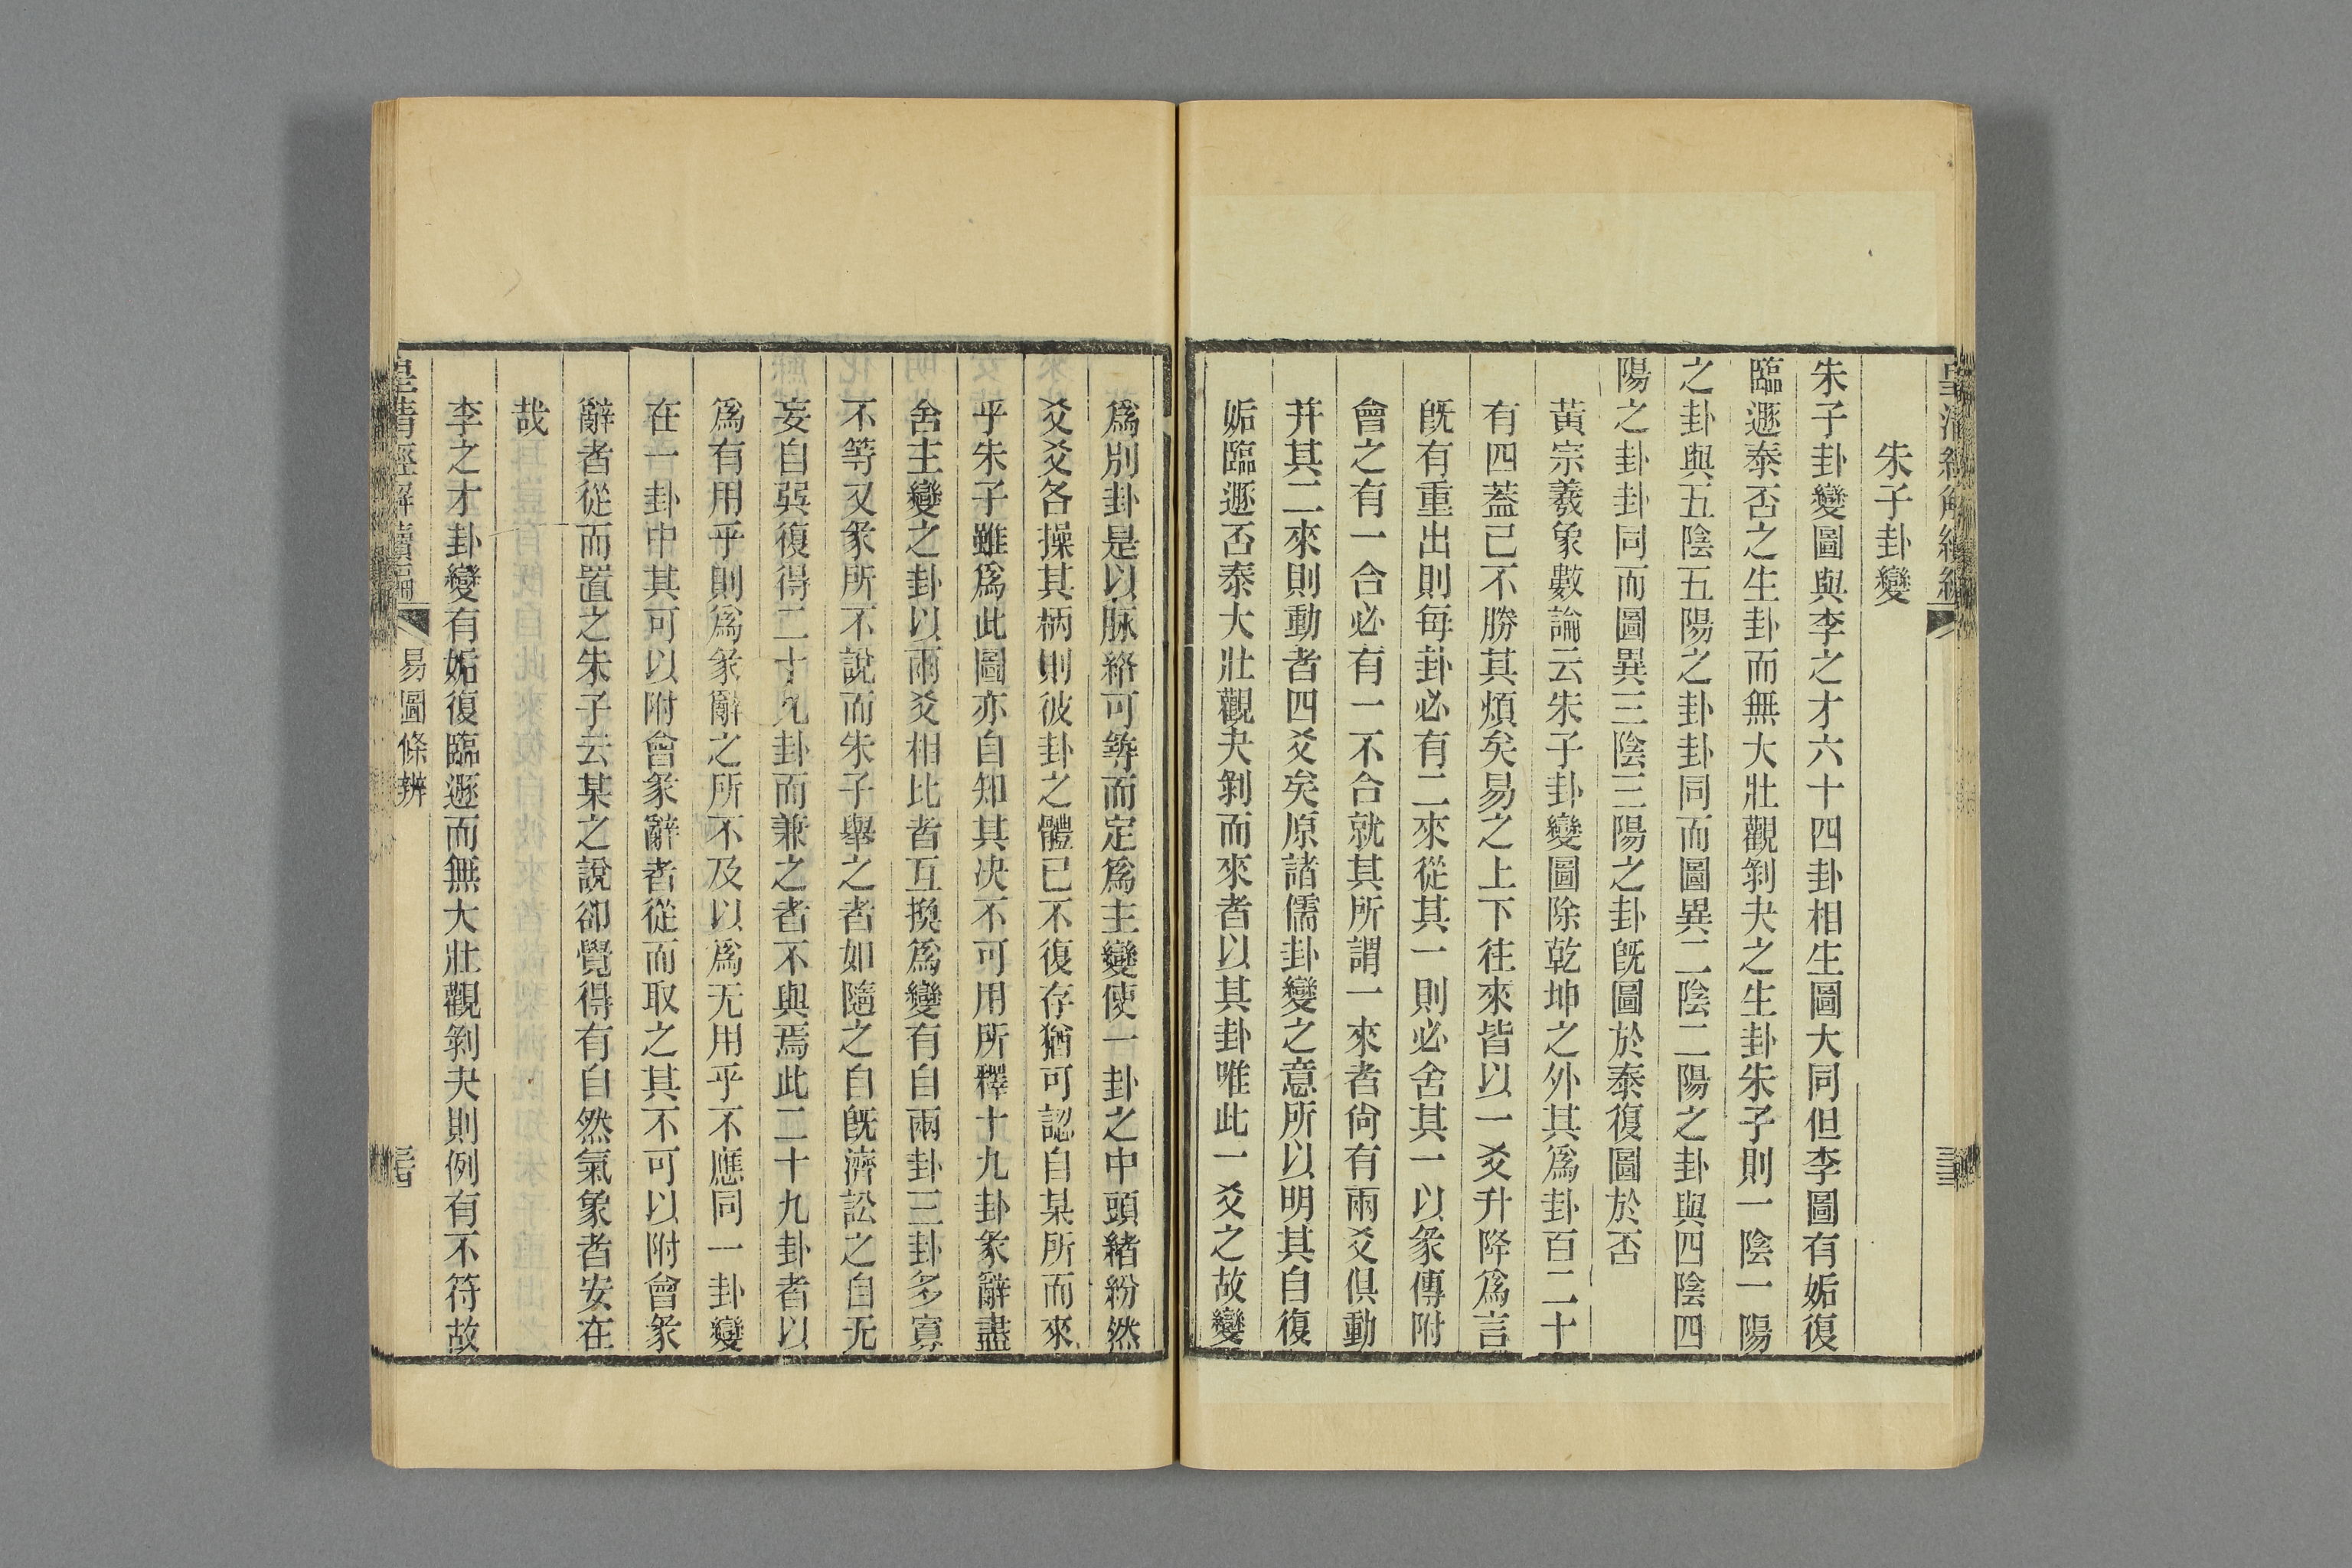 朱子卦變
朱子卦變圖與李之才六十四卦相生圖大同但李圖有姤復
臨遯泰否之生卦而無大壯觀剝夬之生卦朱子則一陰一陽
之卦與五陰五陽之卦卦同而圖異二陰二陽之卦與四陰四
陽之卦卦同而圖異三陰三陽之卦旣圖於泰復圖於否
黃宗羲象數論云朱子卦變圖除乾坤之外其爲卦百二十
有四蓋已不勝其煩矣易之上下往來皆以一爻升降爲言
旣有重出則每卦必有二來從其一則必舍其一以彖傳附
會之有一合必有一不合就其所謂一來者尙有兩爻俱動
并其二來則動者四爻矣原諸儒卦變之意所以明其自復
姤臨遯否泰大壯觀夬剝而來者以其卦唯此一爻之故變
爲別卦是以脉絡可筭而定爲主變使一卦之中頭緒紛然
爻爻各操其柄則彼卦之體已不復存猶可認自某所而來
乎朱子雖爲此圖亦自知其决不可用所釋十九卦彖辭盡
舍主變之卦以兩爻相比者互換爲變有自兩卦三卦多寡
不等又彖所不說而朱子舉之者如隨之自旣濟訟之自无
妄自巽復得二十九卦而兼之者不與焉此二十九卦者以
爲有用乎則爲彖辭之所不及以爲无用乎不應同一卦變
在一卦中其可以附會彖辭者從而取之其不可以附會彖
辭者從而置之朱子云某之說卻覺得有自然氣象者安在
哉
李之才卦變有姤復臨遯而無大壯觀剝夬則例有不符故
皇淸經解續編
易圖條辨